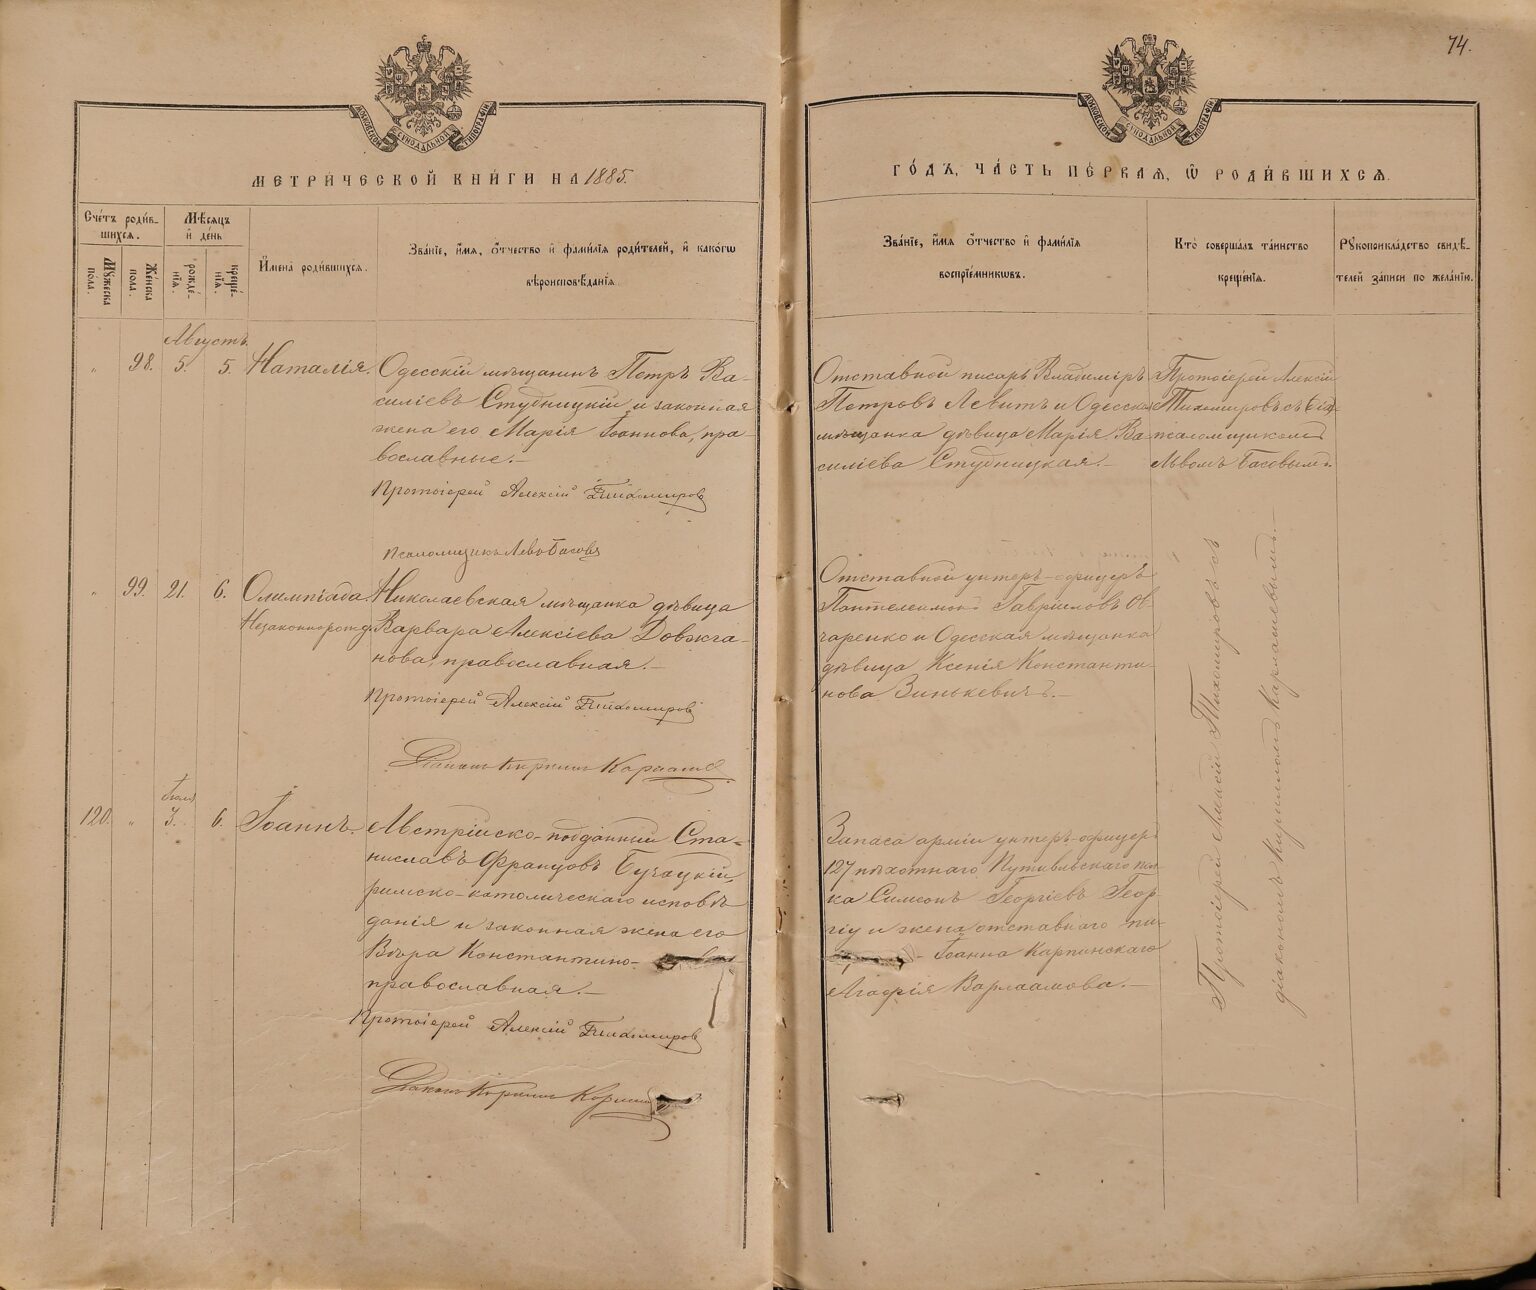 74.
МОСКОВСКОЙ СѴНОДАЛЬНОЙ ТИПОГРАФІИ
МОСКОВСКОЙ СѴНОДАЛЬНОЙ ТИПОГРАФІИ
МЕТРИ́ЧЕСКОЙ КНИ́ГИ НА 1885.
ГО́ДЪ, ЧА́СТЬ ПЕ́РВАѦ, Ѡ҆ РОДИ́ВШИХСѦ.
Сче́тъ роди́в-
шихсѧ.
Мѣ́сѧцъ
и҆ де́нь
Мꙋ́жеска
по́ла.
Же́нска
по́ла.
рожде́-
нїѧ.
креще́-
нїѧ.
И҆мена̀ роди́вшихсѧ.
Зва́нїе, и҆́мѧ, ѻ҆́тчество и҆ фами́лїѧ роди́телей, и҆ како́гѡ
вѣроисповѣ́данїѧ.
Зва́нїе, и҆́мѧ ѻ҆́тчество и҆ фами́лїѧ
воспрїе́мникѡвъ.
Кто̀ соверша́лъ та́инство
креще́нїѧ.
Рꙋкоприкла́дство свидѣ́-
телей за́писи по жела́нїю.
Августъ.
" 98. 5. 5. Наталія.
Одесскій мѣщанинъ Петръ Ва-
силіевъ Студницкій и законная
жена его Марія Іоаннова, пра-
вославные.-
Протоіерей Алексій Тихомировъ
Псаломщикъ Левъ Басовъ
Отставной писарь Владиміръ
Петровъ Левитъ и Одесская
мѣщанка дѣвица Марія Ва-
силіева Студницкая.-
Протоіерей Алексій
Тихомировъ съ
псаломщикомъ
Львомъ Басовымъ.
" 99. 21. 6. Олимпіада.
Незаконнорожд.
Николаевская мѣщанка дѣвица
Варвара Алексіева Довжга-
нова, православная.-
Протоіерей Алексій Тихомировъ
Діаконъ Кириллъ
Отставной унтеръ-офицеръ
Пантелеимонъ Гавриловъ Ов-
чаренко и Одесская мѣщанка
дѣвица Ксенія Константи-
нова Зинькевичъ.-
Протоіерей Алексій Тихомировъ съ
діакономъ Кирилломъ Варламовымъ.-
Іюля
120. " 3. 6. Іоаннъ.
Австрійско-подданный Ста-
ниславъ Францовъ Бучацкій,
римско-католическаго исповѣ-
данія и законная жена его
Вѣра Константино-
православная.-
Протоіерей Алексій Тихомировъ
Діаконъ Кириллъ
Запаса арміи унтеръ-офицеръ
127 пѣхотнаго Путивльскаго пол-
ка Симеонъ Георгіевъ Геор-
гіу и жена отставного пи-
Іоанна Карпинскаго
Агафія Варлаамова.-